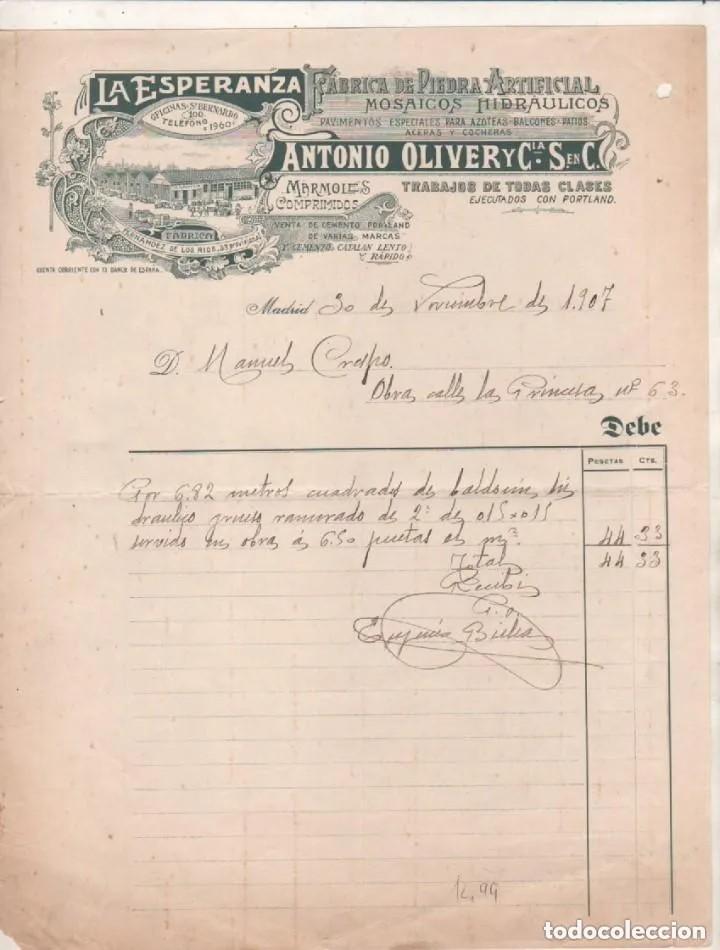 LA ESPERANZA
FÁBRICA DE PIEDRA ARTIFICIAL
MOSAICOS HIDRAULICOS
OFICINAS-Sn BERNARDO
100.
TELEFONO 1960
PAVIMENTOS ESPECIALES PARA AZOTEAS-BALCONES-PATIOS
ACERAS Y COCHERAS
ANTONIO OLIVER Y CIA. S. EN C.
MARMOLES
COMPRIMIDOS
TRABAJOS DE TODAS CLASES
EJECUTADOS CON PORTLAND.
FÁBRICA
FERNANDEZ DE LOS RIOS,
VENTA DE CEMENTO PORTLAND
DE VARIAS MARCAS
Y CEMENTO CATALAN LENTO
Y RÁPIDO
CUENTA CORRIENTE CON EL BANCO DE ESPAÑA.
Madrid 30 de Noviembre de 1.907
D. Manuel Crespo.
Obra calle la Princesa nº 63.
Debe
PESETAS CTS.
Por 6.82 metros cuadrados de baldosin hi
draulico grueso ranurado de 2ª de 015x015
servido en obra á 6.50 pesetas el m² 44 33
Total 44 33
Recibi
P.o.
Eugenio Bielsa
12,99
todocoleccion.net